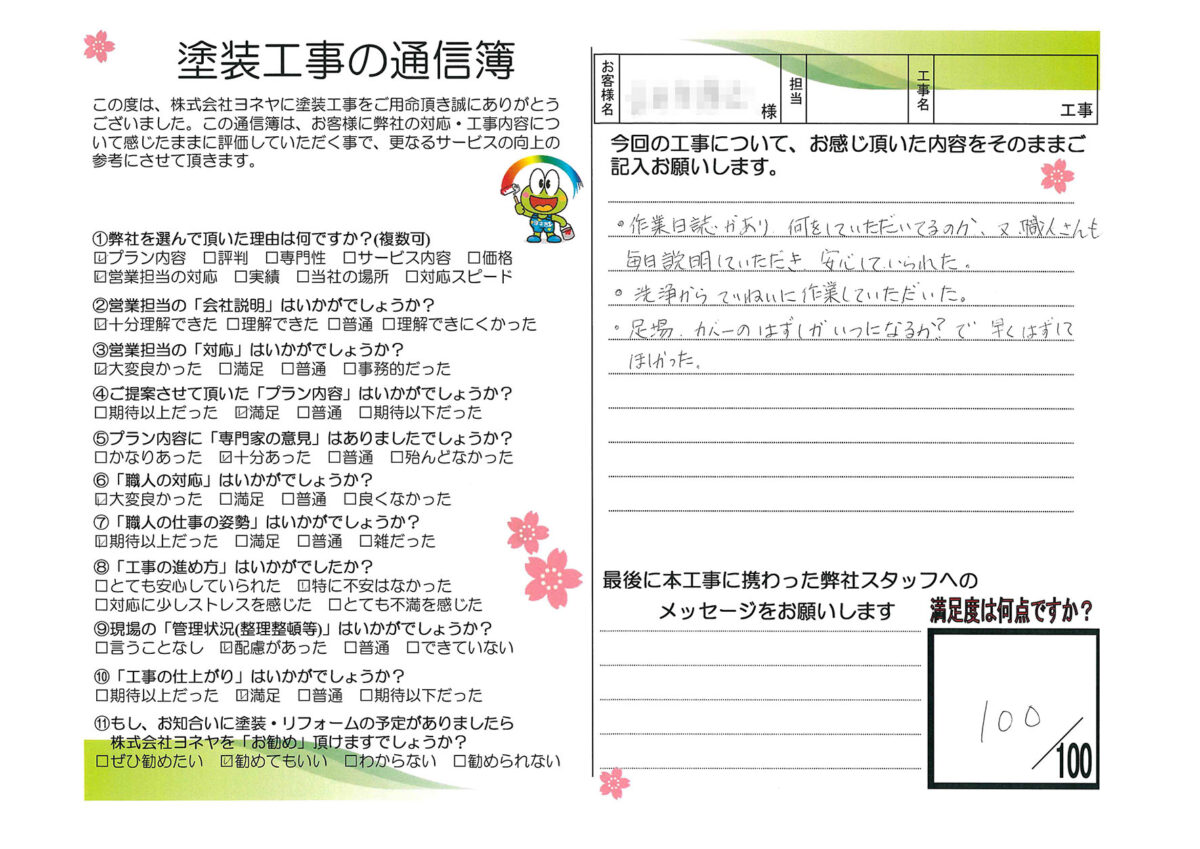 塗装工事の通信簿
この度は、株式会社ヨネヤに塗装工事をご用命頂き誠にありがとう
ございました。この通信簿は、お客様に弊社の対応・工事内容につ
いて感じたままに評価していただく事で、更なるサービスの向上の
参考にさせて頂きます。
①弊社を選んで頂いた理由は何ですか?(複数可)
☑プラン内容 □評判 □専門性 □サービス内容 □価格
☑営業担当の対応 □実績 □当社の場所 □対応スピード
②営業担当の「会社説明」はいかがでしょうか?
☑十分理解できた □理解できた □普通 □理解できにくかった
③営業担当の「対応」はいかがでしょうか?
☑大変良かった □満足 □普通 □事務的だった
④ご提案させて頂いた「プラン内容」はいかがでしょうか?
□期待以上だった ☑満足 □普通 □期待以下だった
⑤プラン内容に「専門家の意見」はありましたでしょうか?
□かなりあった ☑十分あった □普通 □殆んどなかった
⑥「職人の対応」はいかがでしょうか?
☑大変良かった □満足 □普通 □良くなかった
⑦「職人の仕事の姿勢」はいかがでしょうか?
☑期待以上だった □満足 □普通 □雑だった
⑧「工事の進め方」はいかがでしたか?
□とても安心していられた ☑特に不安はなかった
□対応に少しストレスを感じた □とても不満を感じた
⑨現場の「管理状況(整理整頓等)」はいかがでしょうか?
□言うことなし ☑配慮があった □普通 □できていない
⑩「工事の仕上がり」はいかがでしょうか?
□期待以上だった ☑満足 □普通 □期待以下だった
⑪もし、お知合いに塗装・リフォームの予定がありましたら
株式会社ヨネヤを「お勧め」頂けますでしょうか?
□ぜひ勧めたい ☑勧めてもいい □わからない □勧められない
お客様名 様 担当 工事名 工事
今回の工事について、お感じ頂いた内容をそのままご
記入お願いします。
。作業日誌があり、何をしていただいてるのか、又、職人さんも
毎日説明していただき、安心していられた。
。洗浄からていねいに作業していただいた。
・足場、カバーのはずしがいつになるか?で早くはずして
ほしかった。
最後に本工事に携わった弊社スタッフへの
メッセージをお願いします
満足度は何点ですか?
100/100